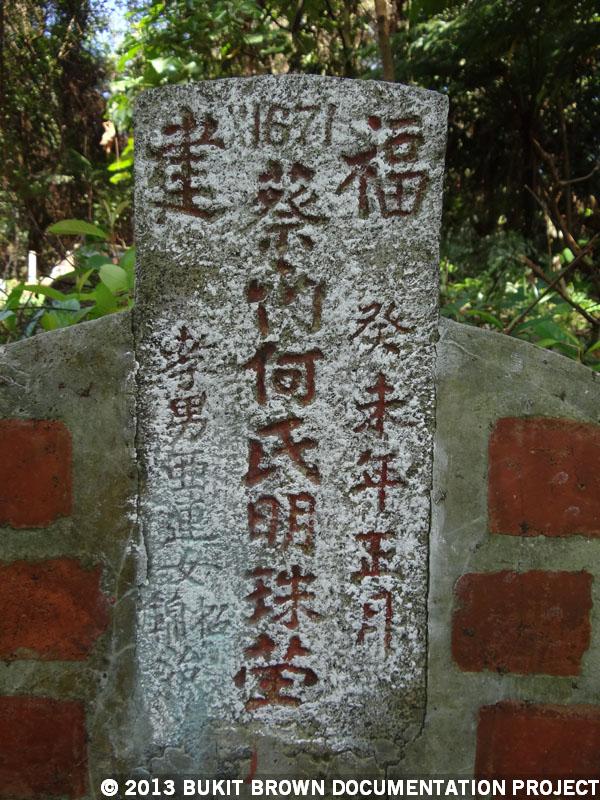 福建
1671
癸未年正月
蔡門何氏明珠茔
孝男亜運女
錦治
© 2013 BUKIT BROWN DOCUMENTATION PROJECT